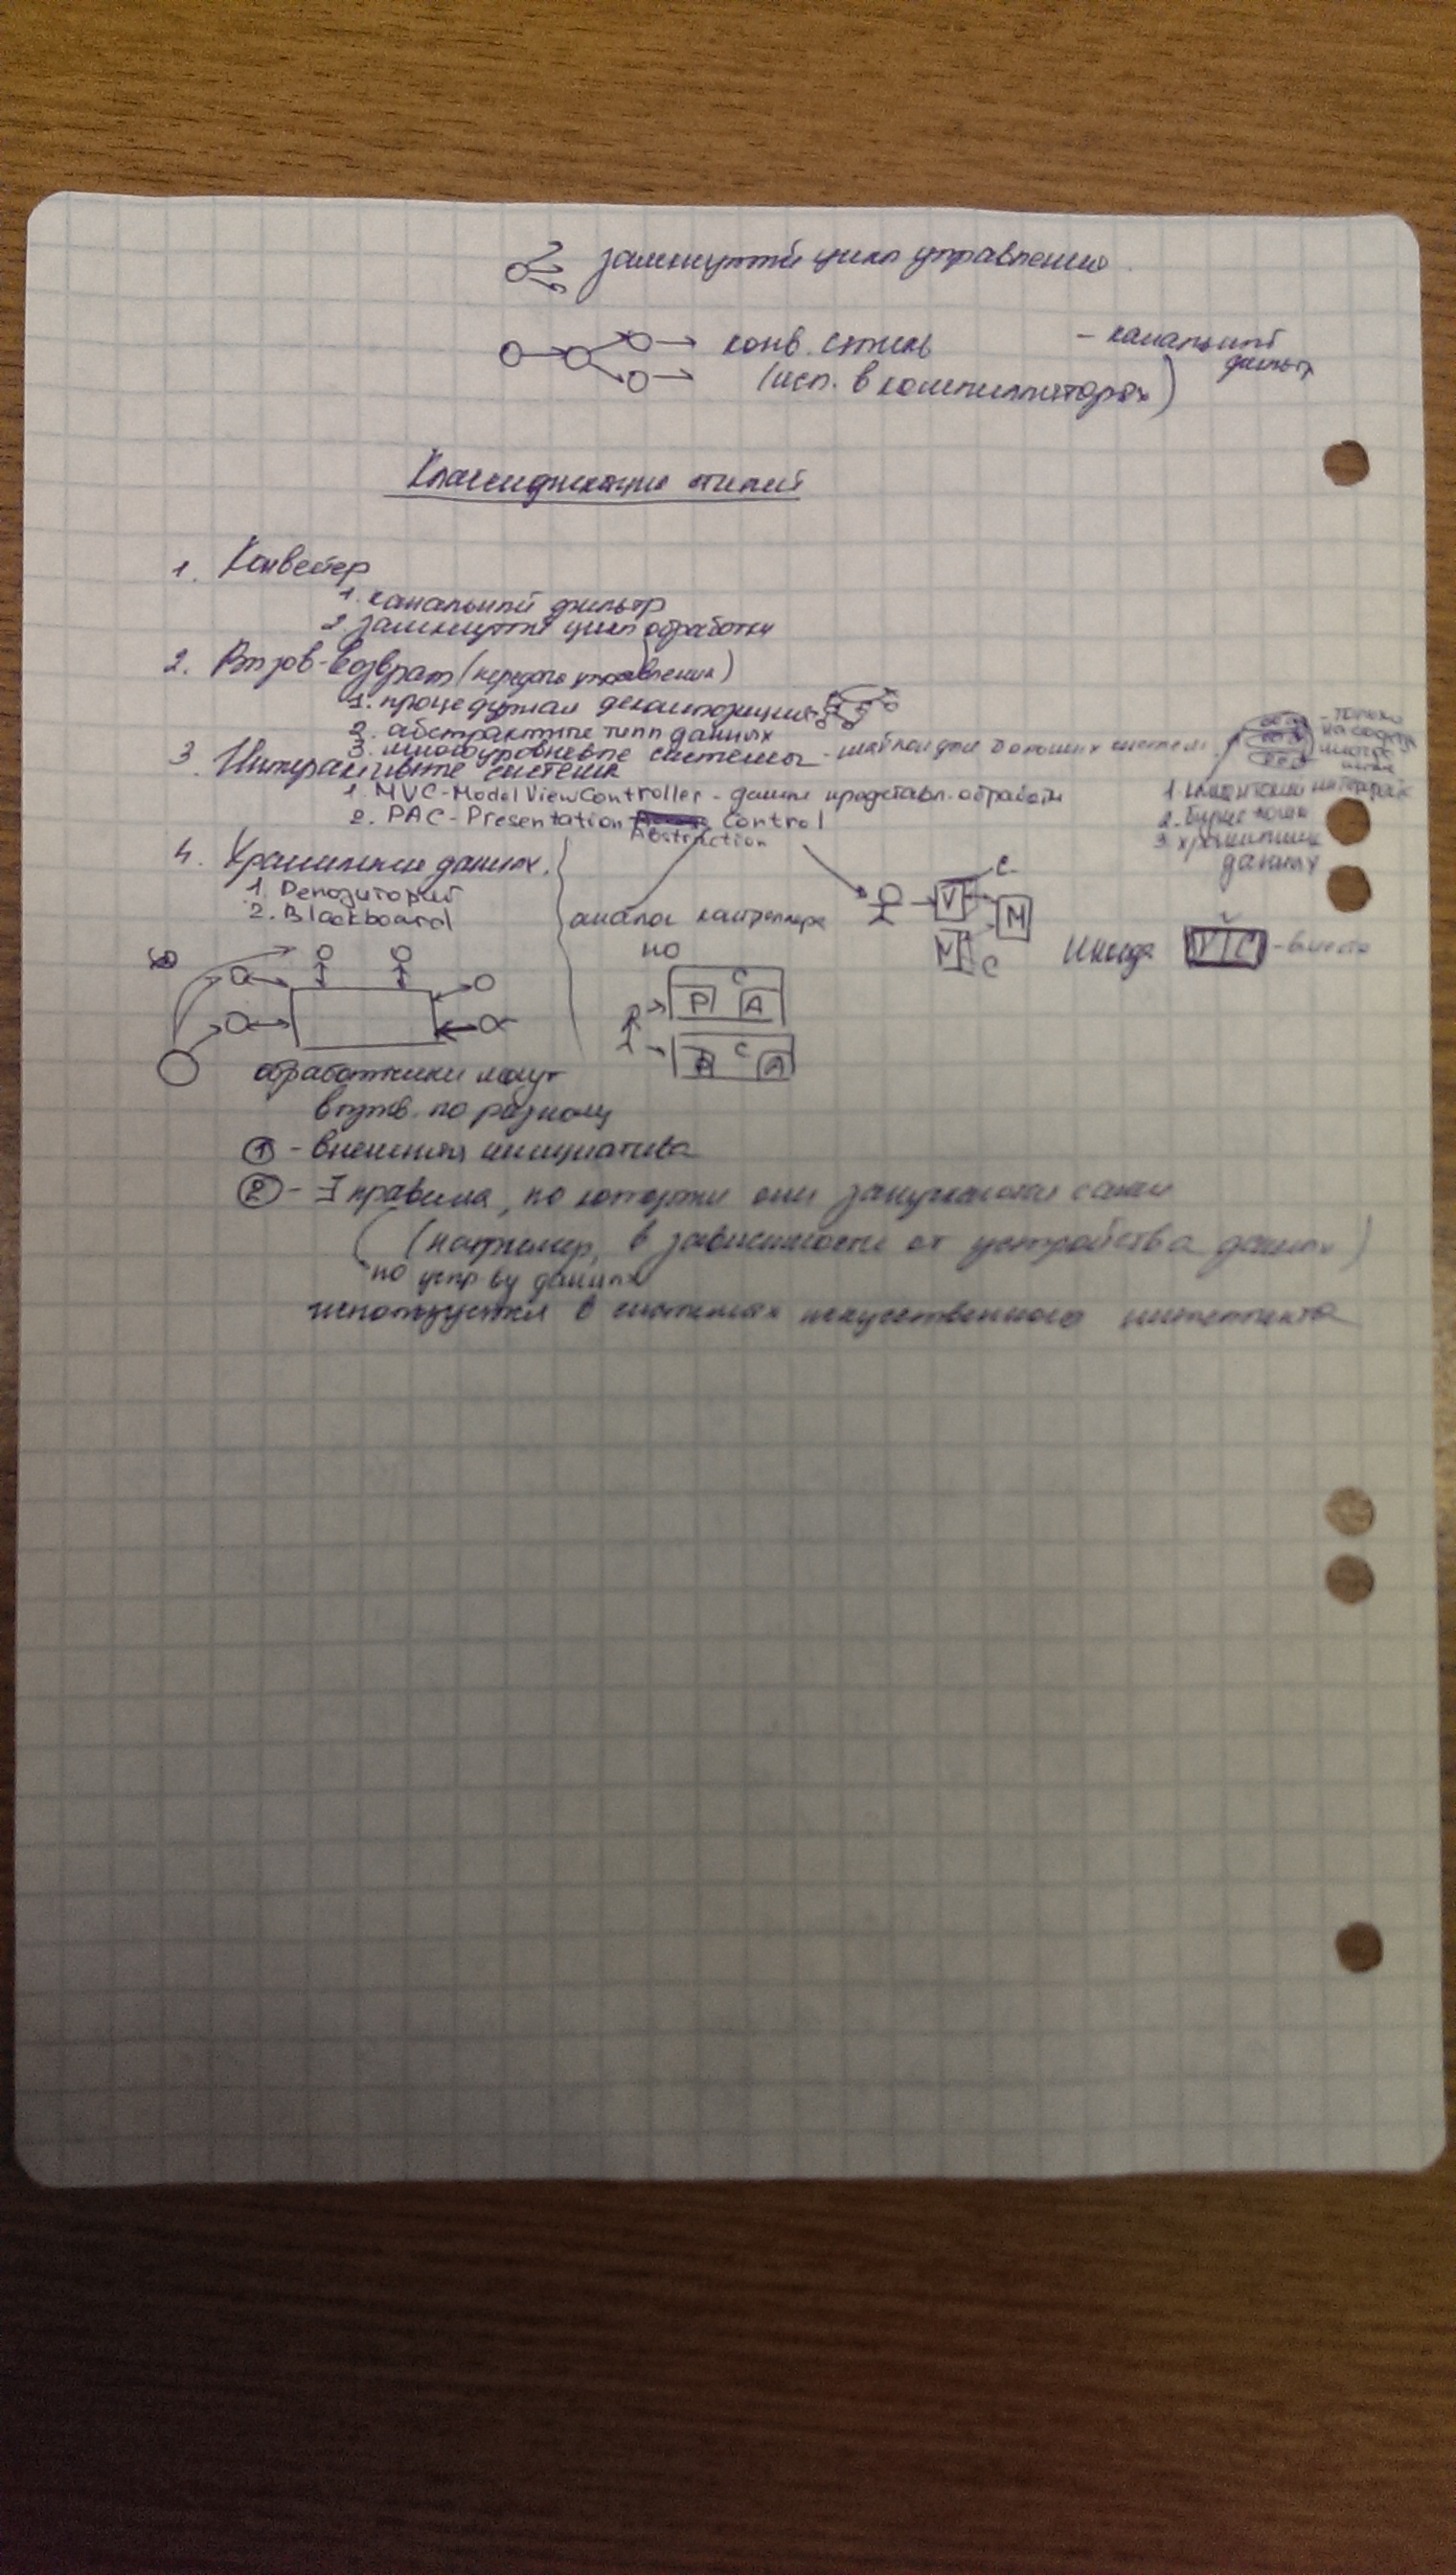 замкнутый цикл управления
конв. стиль - канальный
(исп. в компилляторах) фильтр
Классификация стилей
1. Конвейер
1. канальный фильтр
2. замкнутый цикл обработки
2. Вызов-возврат (передача управления)
1. процедурная декомпозиция
2. абстрактные типы данных
3. многоуровневые системы - шаблон для больших систем
3. Интерактивные системы
1. MVC - Model View Controller - данные представл. обработч
2. PAC - Presentation Abstraction Control
4. Хранилище данных.
1. Репозиторий
2. Blackboard
1. клиентский интерфейс
2. бизнес логика
3. хранилище
данных
аналог контроллера
но
C
V
M
V
C
Иногда V C - вместе
C
P A
C
P A
обработчики могут
вызыв. по разному
① - внешняя инициатива
② - ∃ правила, по которым они запускаются сами
(например, в зависимости от устройства данных)
по устр-ву данных
используется в системах искусственного интеллекта